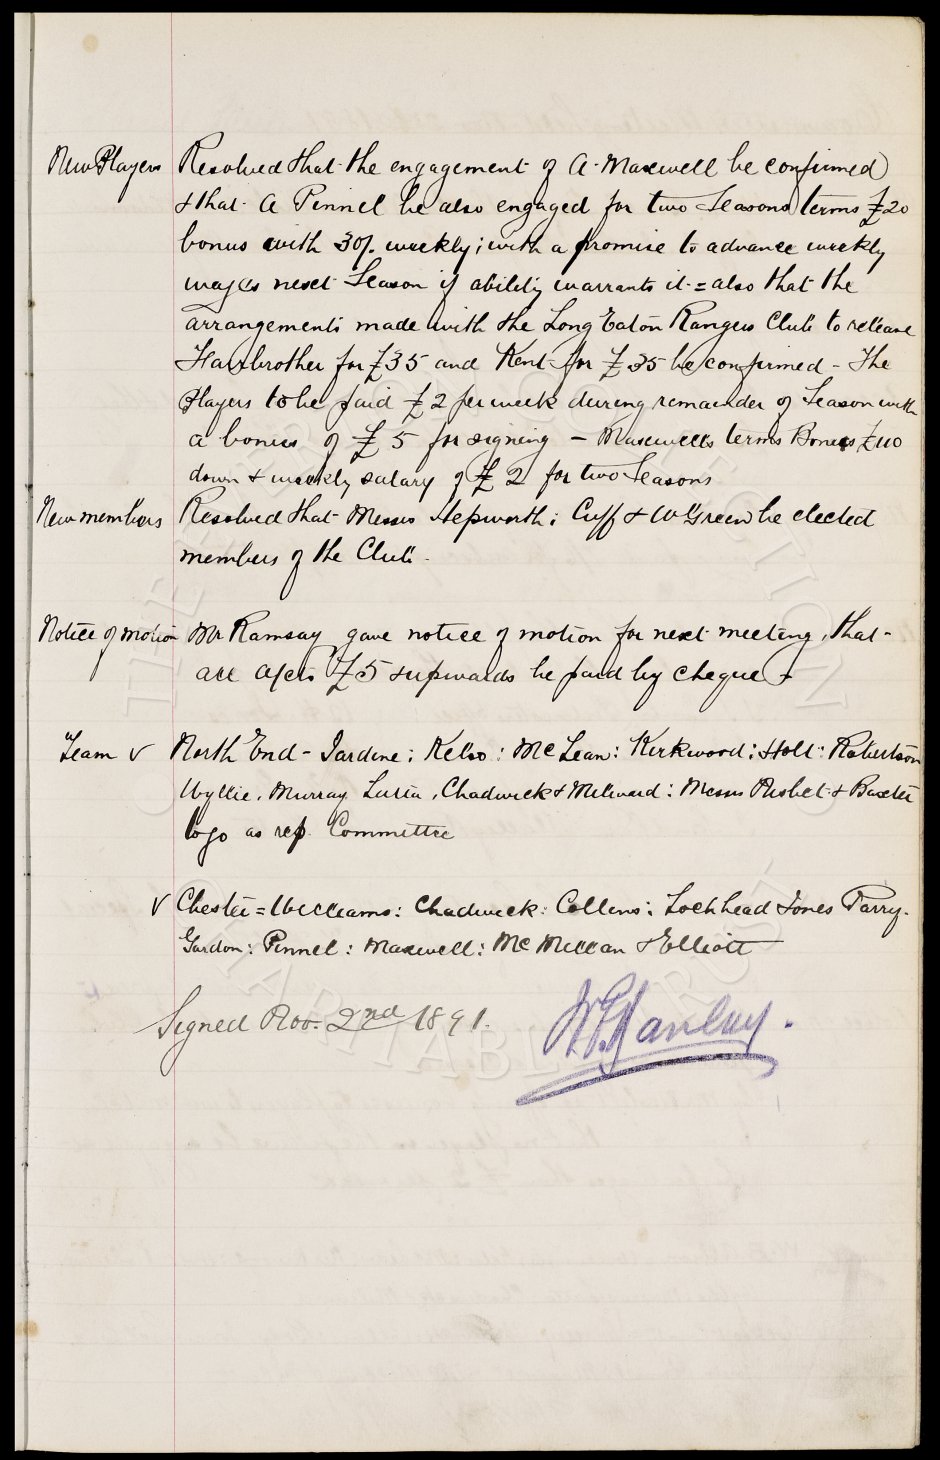 New Players Resolved that the engagement of A. Maxwell be confirmed
& that A Pinnel be also engaged for two Seasons terms £20
bonus with 30/- weekly; with a promise to advance weekly
wages next Season if ability warrants it = also that the
arrangements made with the Long Eaton Rangers Club to release
Hairbrother for £35 and Kent for £35 be confirmed - The
Players to be paid £2 per week during remainder of Season with
a bonus of £5 for signing - Maxwells terms Bonus £110
down & weekly salary of £2 for two Seasons
New members Resolved that Messrs Hepworth; Cuff & W Green be elected
members of the Club.
Notice of motion Mr Ramsay gave notice of motion for next meeting, that
all a/cts £5 & upwards be paid by cheque
Team v North End - Jardine; Kelso: McLean: Kirkwood: Holt: Robertson
Wyllie, Murray Latta, Chadwick & Milward: Messrs Nisbet & Baxter
to go as rep. Committee
v Chester = Williams: Chadwick: Collins: Lochhead Jones Parry.
Gordon: Pinnel: Maxwell: McMillan & Elliott
Signed Nov. 2nd 1891.
THE EVERTON COLLECTION
CHARITABLE TRUST